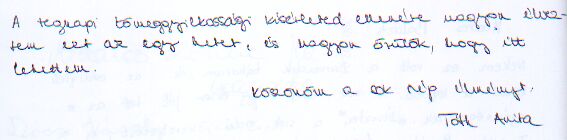 A tegnapi tömeggyilkossági kísérleted ellenére nagyon élvez-
tem ezt az egy hetet, és nagyon örülök, hogy itt
lehettem.
Köszönöm a sok szép élményt.
Tóth Anita